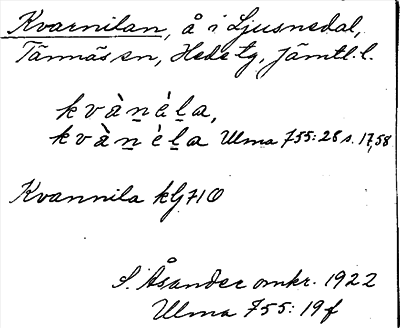 Kvarnilan, å i Ljusnedal,
Tännäs sn, Hede tg, Jämtl. l.
kvàn̲èl̲a,
kvàn̲èl̲a Ulma 755:28 s. 17,58
Kvannila kG710
S. Åsander omkr. 1922
Ulma 755:19f